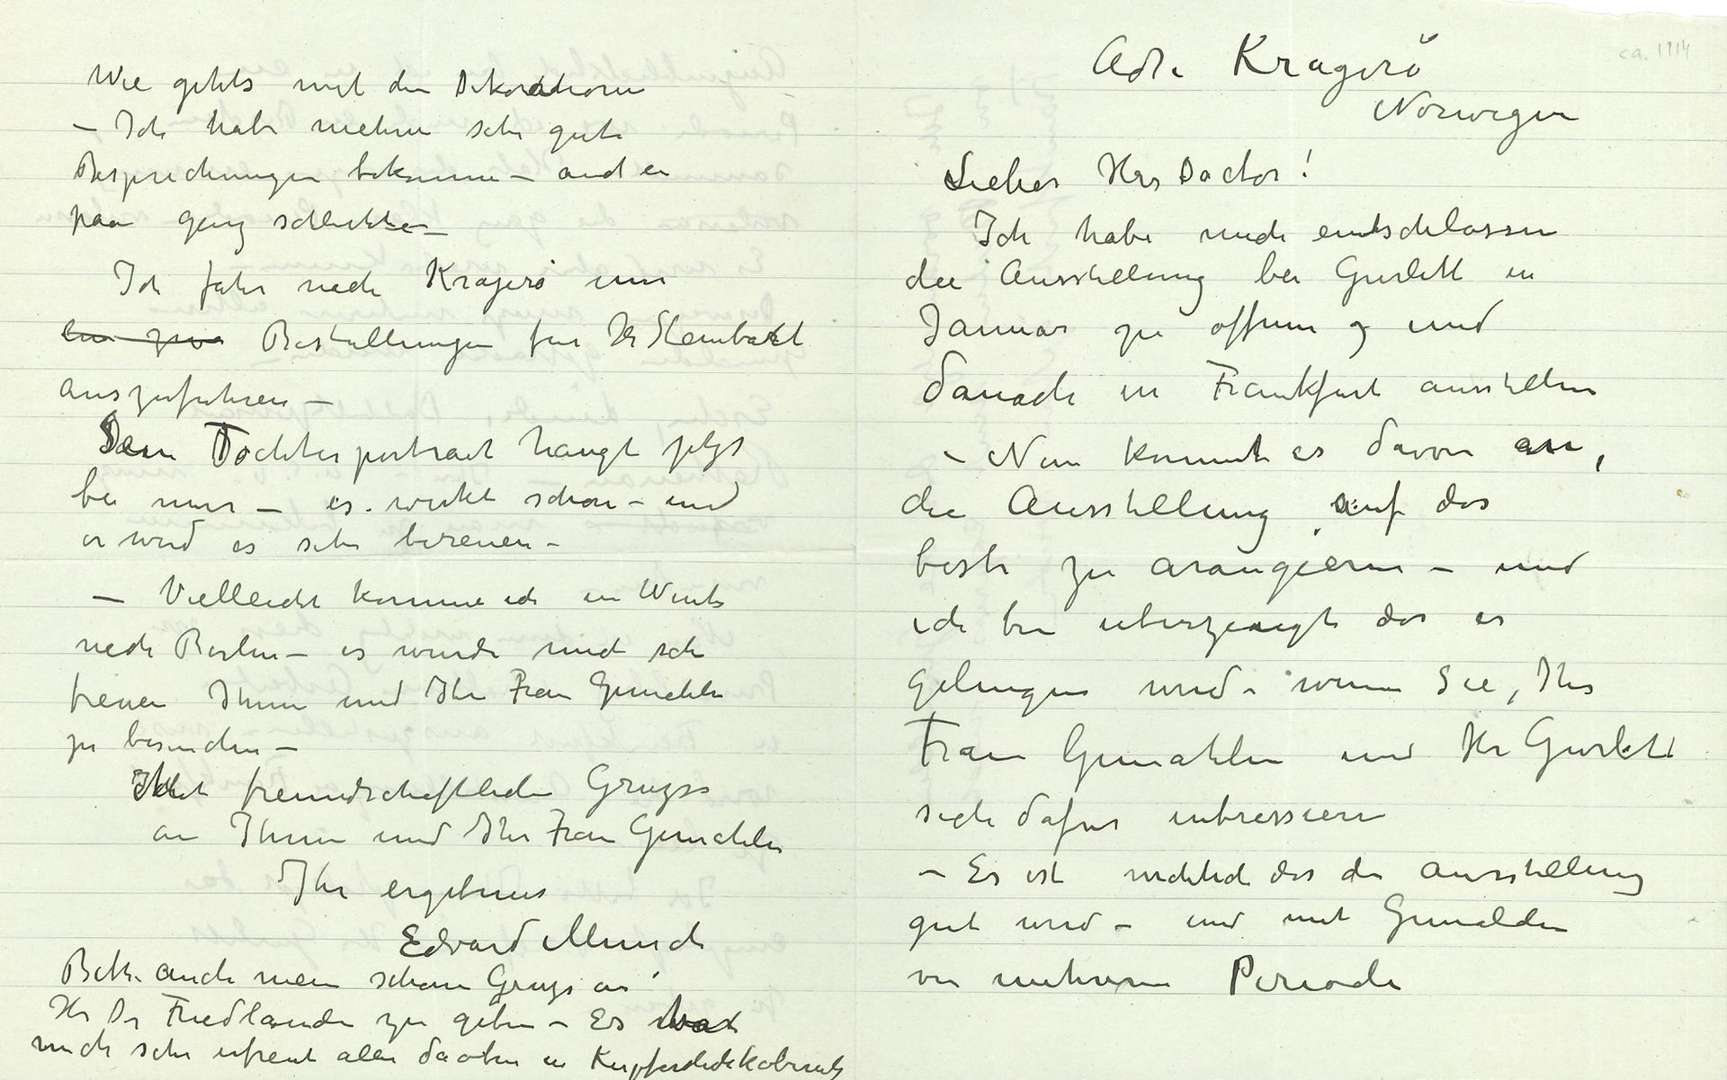 ca. 1914
Adr. Kragerö
Norwegen
Lieber Herr Doctor!
Ich habe mich entschlossen
die Ausstellung bei Gurlitt in
Januar zu offnen og und
danach in Frankfurt ausstellen
– Nun kommt es davon an,
die Ausstellung auf das
beste zu arangieren – und
ich bin uberzeugt das es
gelingen wird – wenn Sie, Ihr
Frau Gemahlin und Hr Gurlitt
sich dafur intressieren
– Es ist das die Ausstellung
gut wird – und mit Gemälden
von mehreren Periode
Wie gehts mit den Dekorationen
– Ich habe mehrere sehr gute
Besprechungen bekommen – und ein
paar ganz schlechte –
Ich fahre nach Kragerö um
Bestellungen fur Hr
auszufuhren –
Tochterportrait hangt jetzt
bei mir – es wirkt schön – und
er wird es sehr bereuen –
– Vielleicht komme ich in Winter
nach Berlin – es wurde mich sehr
freuen Ihnen und Ihr Frau Gemahlin
zu besuchen –
Mit freundschaftlichen Gruss
an Ihnen und Ihr Frau Gemahlin
Ihr ergebener
Edvard Munch
Bitte auch mein schönen Gruss an
Hr Dr Friedländer zu geben – Es hat
mich sehr erfreut alle da oben in Kupferstichkabinett